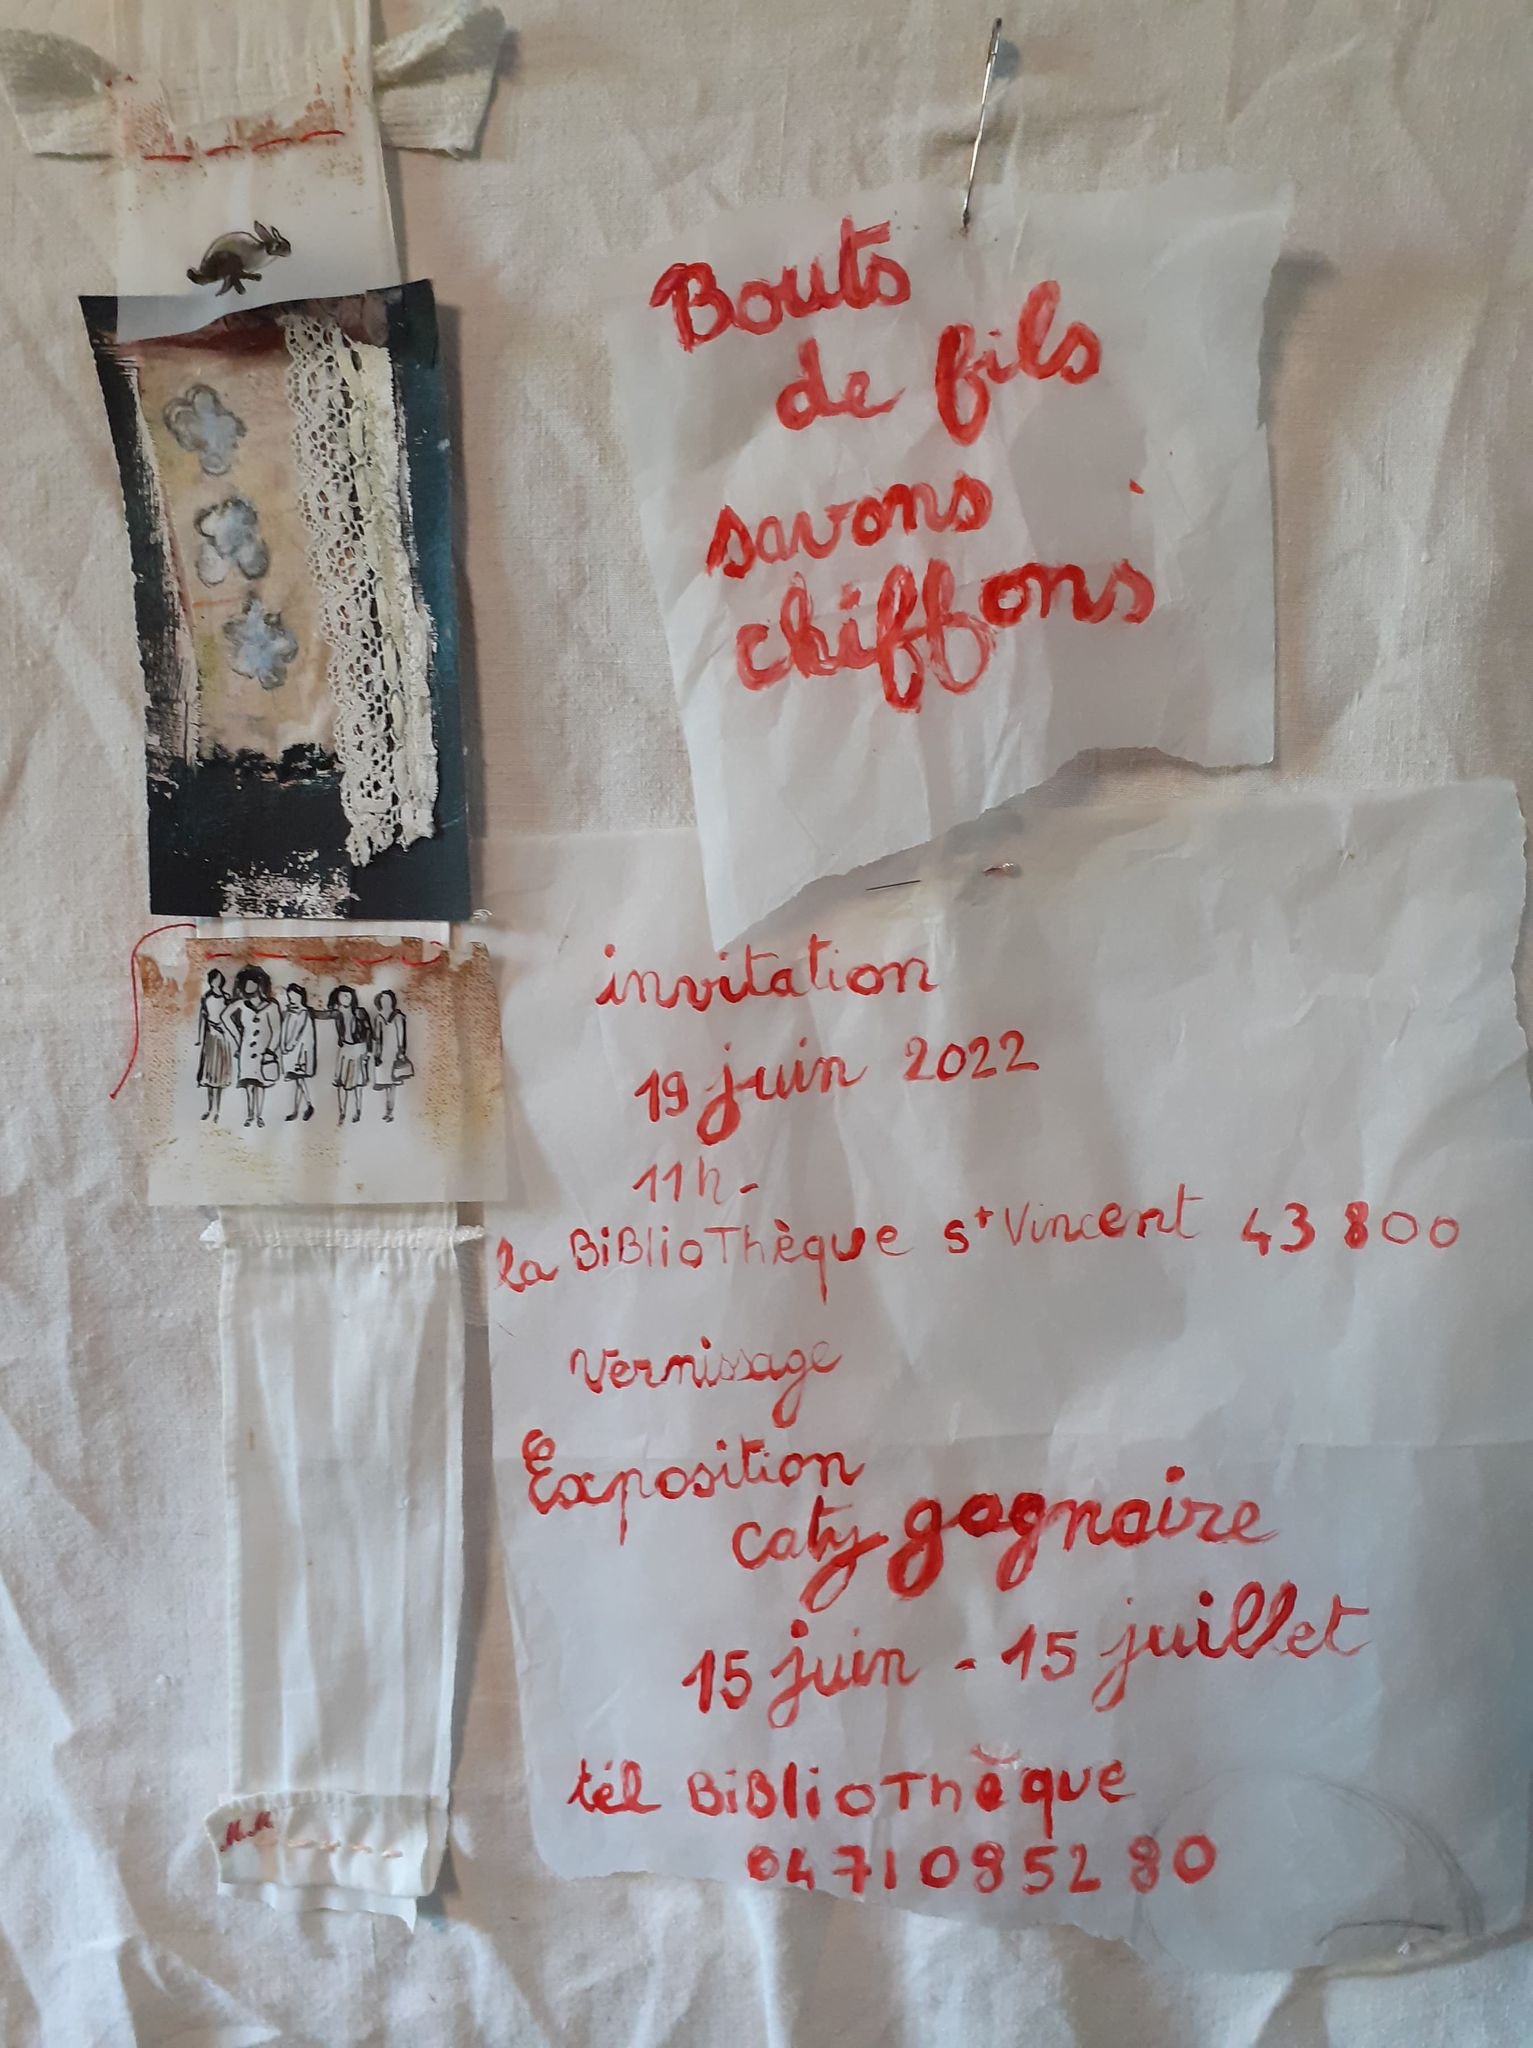 Bouts
de fils
savons
chiffons
invitation
19 juin 2022
11h-
la BiBlioThèque st Vincent 43 800
Vernissage
Exposition
caty gagnaire
15 juin - 15 juillet
tél BiBlioThèque
04 71 08 52 80
M.M